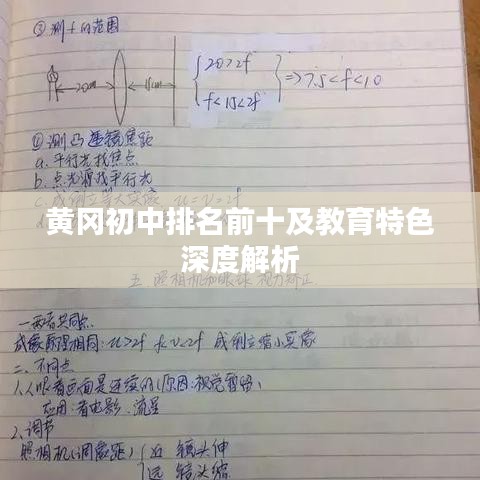 ③测f的范围
20cm
15cm
20>2f
f<15<2f
=>7.5<f<10
④测凸透镜焦距
a.平行光找焦点
b.点光源找平行光
c.成倒立等大实像 u=v=2f
黄冈初中排名前十及教育特色
深度解析
五 照相机和眼球 视力矫正
一.两者共同点
成像原理相同:u>2f f<v<2f 成倒立缩小实像
二、不同点
1、人眼看画面是连续的(原因:视觉暂留)
应用:看电影.流星
2、调节
照相机(调像距) 近 镜头伸
远 镜头缩